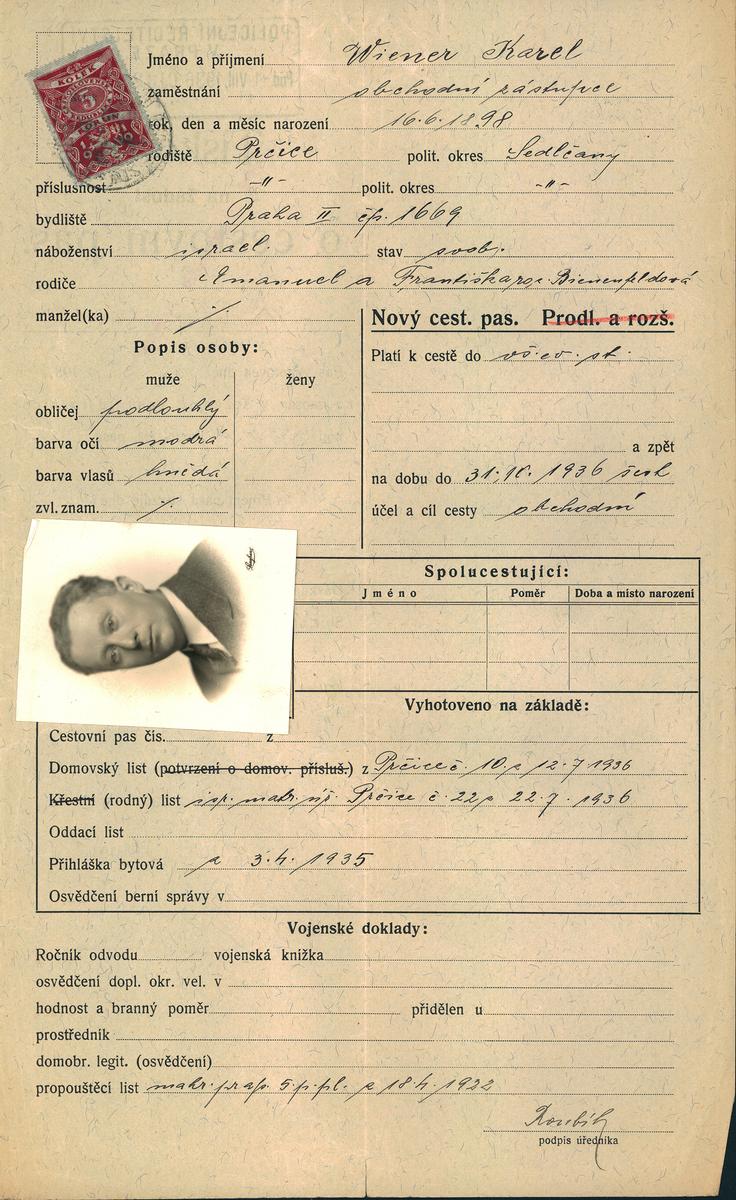 KOLEK
5
Jméno a příjmení Wiener Karel
zaměstnání obchodní zástupce
rok, den a měsíc narození 16.6.1898
rodiště Prčice polit. okres Sedlčany
příslušnost -"- polit. okres -"-
bydliště Praha II čp. 1669
náboženství israel. stav svob.
rodiče Emanuel a Františka roz. Bienenfeldová
manžel(ka) ⁒
Nový cest. pas. Prodl. a rozš.
Popis osoby:
Platí k cestě do vš. ev. st.
muže ženy
obličej podlouhlý
barva očí modrá
a zpět
barva vlasů hnědá
na dobu do 31.10.1936
zvl. znam. ⁒
účel a cíl cesty obchodní
Spolucestující:
Jméno Poměr Doba a místo narození
Vyhotoveno na základě:
Cestovní pas čís. z
Domovský list (potvrzení o domov. přísluš.) z Prčice č. 10 z 12.7.1936
Křestní (rodný) list isr. matr. Prčice č. 22 z 22.7.1936
Oddací list
Přihláška bytová z 3.4.1935
Osvědčení berní správy v
Vojenské doklady:
Ročník odvodu vojenská knížka
osvědčení dopl. okr. vel. v
hodnost a branný poměr přidělen u
prostředník
domobr. legit. (osvědčení)
propouštěcí list 5. p. pl. z 18.4.1922
Roubík
podpis úředníka